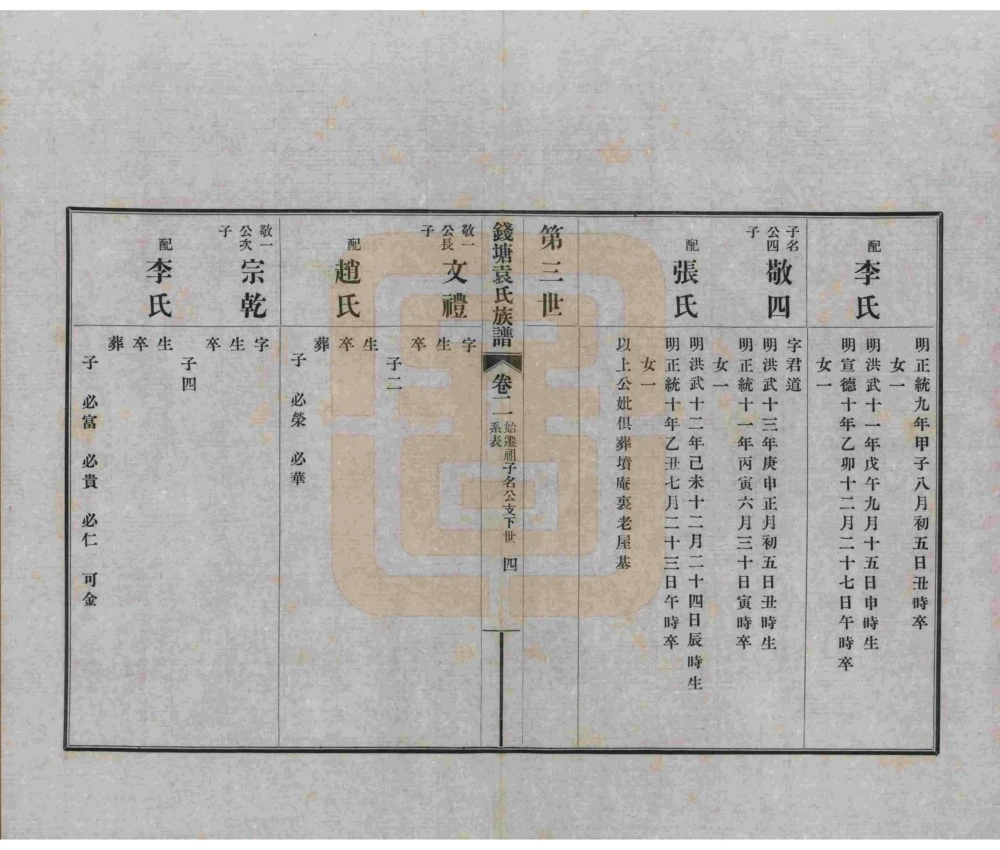 明正統九年甲子八月初五日丑時卒
女一
配
李氏
明洪武十一年戊午九月十五日申時生
明宣德十年乙卯十二月二十七日午時卒
女一
子名
公四
子
敬四
字君道
明洪武十三年庚申正月初五日丑時生
明正統十一年丙寅六月三十日寅時卒
女一
配
張氏
明洪武十二年己未十二月二十四日辰時生
明正統十年乙丑七月二十三日午時卒
女一
以上公妣俱葬墳庵裏老屋基
第三世
錢塘袁氏族譜
卷二
始遷祖子名公支下世
系表
四
敬一
公長
子
文禮
字
生
卒
子二
配
趙氏
生
卒
葬
子 必榮 必華
敬一
公次
子
宗乾
字
生
卒
子四
配
李氏
生
卒
葬
子 必富 必貴 必仁 可金